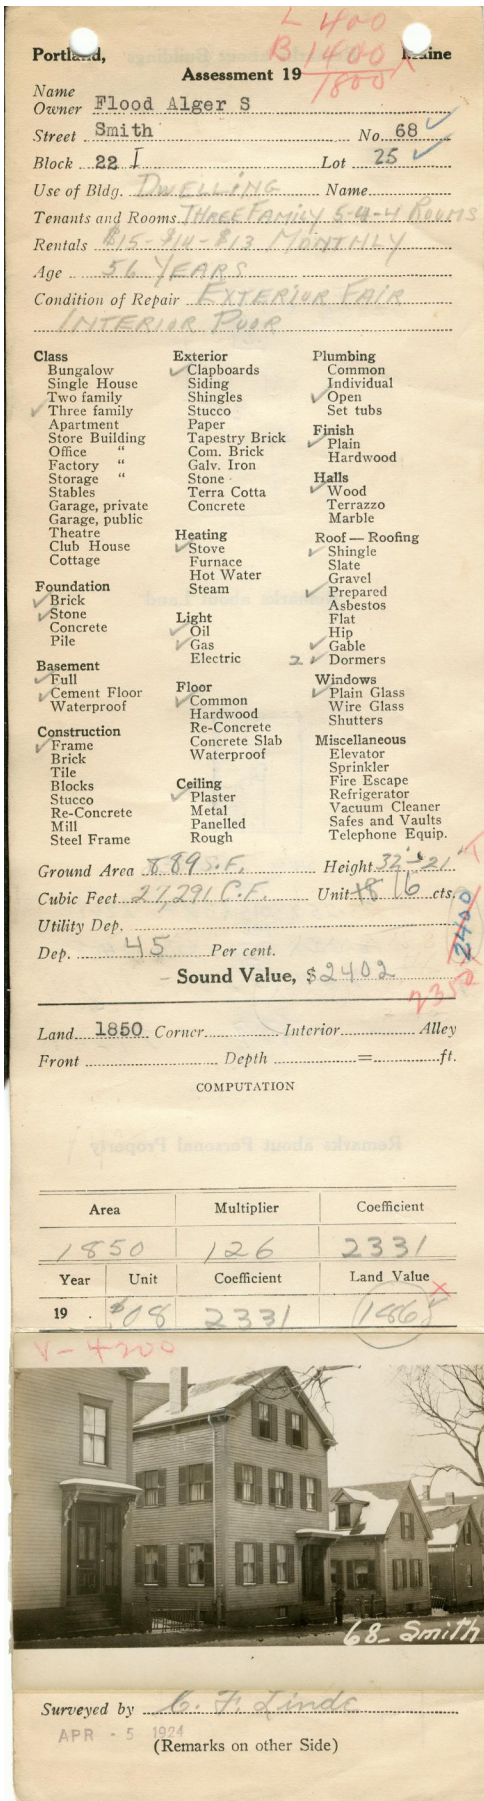 L 400
B 1400
1800
Portland, Maine
Assessment 19
Name
Owner Flood Alger S
Street Smith No. 68
Block 22 I Lot 25
Use of Bldg. DWELLING Name
Tenants and Rooms THREE FAMILY 5-4-4 ROOMS
Rentals $15-$14-$13 MONTHLY
Age 56 YEARS
Condition of Repair EXTERIOR FAIR
INTERIOR POOR
Class
Bungalow
Single House
Two family
Three family
Apartment
Store Building
Office "
Factory "
Storage "
Stables
Garage, private
Garage, public
Theatre
Club House
Cottage
Foundation
Brick
Stone
Concrete
Pile
Basement
Full
Cement Floor
Waterproof
Construction
Frame
Brick
Tile
Blocks
Stucco
Re-Concrete
Mill
Steel Frame
Exterior
Clapboards
Siding
Shingles
Stucco
Paper
Tapestry Brick
Com. Brick
Galv. Iron
Stone
Terra Cotta
Concrete
Heating
Stove
Furnace
Hot Water
Steam
Light
Oil
Gas
Electric
Floor
Common
Hardwood
Re-Concrete
Concrete Slab
Waterproof
Ceiling
Plaster
Metal
Panelled
Rough
Plumbing
Common
Individual
Open
Set tubs
Finish
Plain
Hardwood
Halls
Wood
Terrazzo
Marble
Roof — Roofing
Shingle
Slate
Gravel
Prepared
Asbestos
Flat
Hip
Gable
2 Dormers
Windows
Plain Glass
Wire Glass
Shutters
Miscellaneous
Elevator
Sprinkler
Fire Escape
Refrigerator
Vacuum Cleaner
Safes and Vaults
Telephone Equip.
Ground Area 889 S.F. Height 32'-21'
Cubic Feet 27,291 C.F. Unit 18 16 cts.
Utility Dep.
2400
Dep. 45 Per cent.
Sound Value, $2402
2350
Land 1850 Corner Interior Alley
Front Depth = ft.
COMPUTATION
Area Multiplier Coefficient
1850 126 2331
Year Unit Coefficient Land Value
19 $08 2331 186
V-4200
68- Smith
Surveyed by C. F. Linde
APR - 5 1924
(Remarks on other Side)